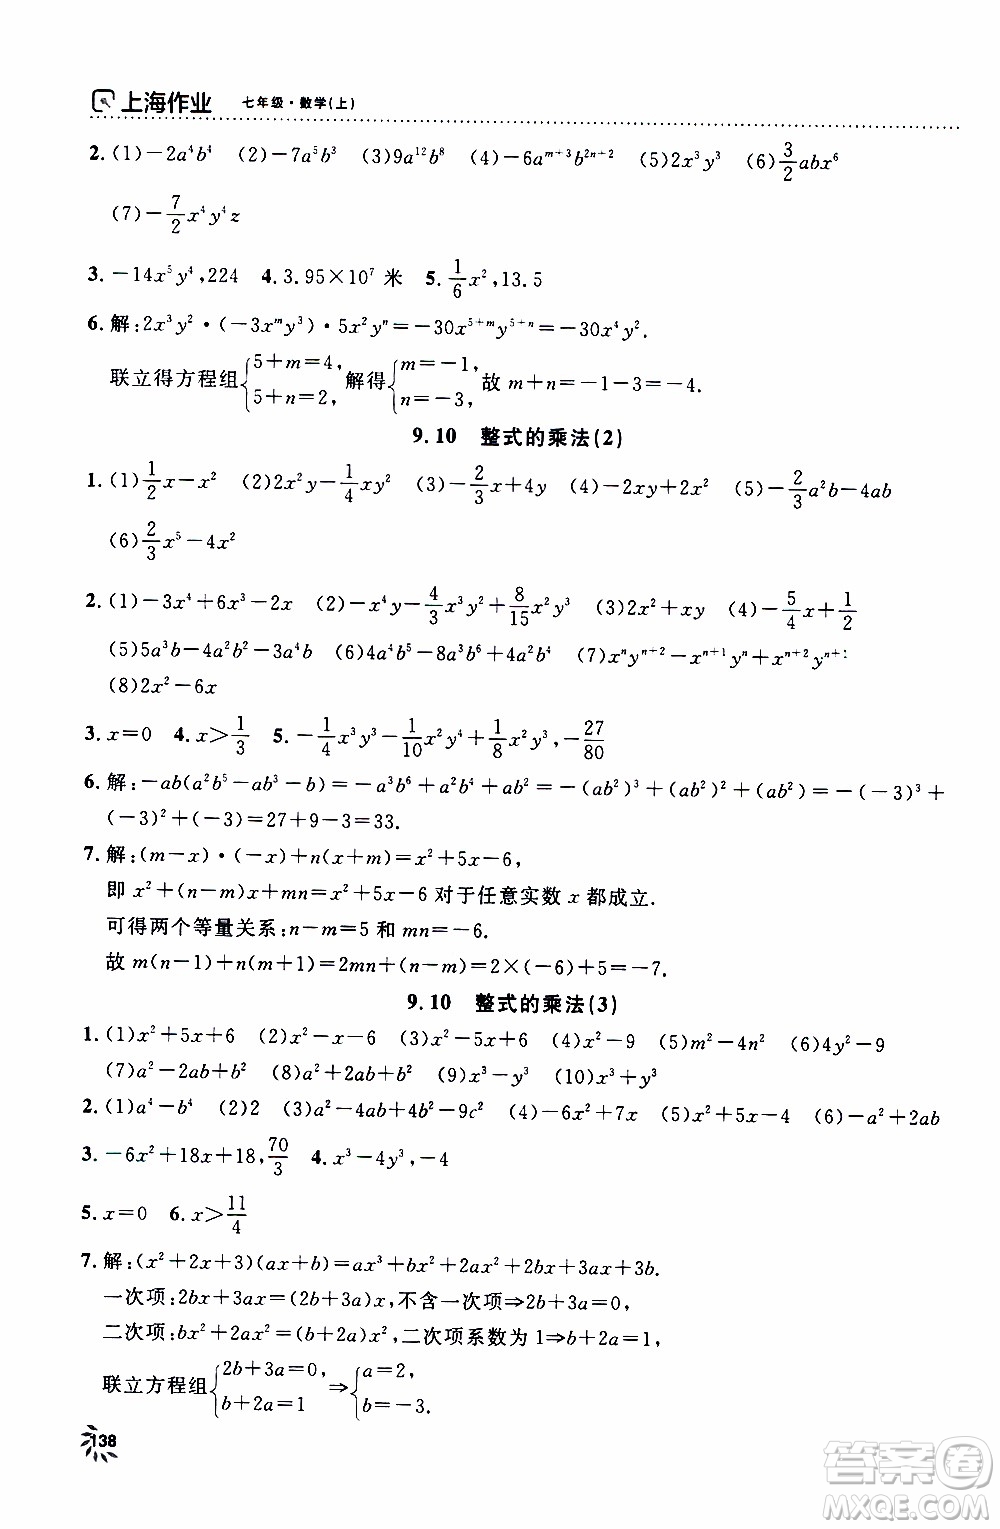 上海作业 七年级·数学(上)
2. (1)－2a⁴b⁴ (2)－7a⁵b³ (3)9a¹²b⁸ (4)－6aᵐ⁺³b²ⁿ⁺² (5)2x³y³ (6)3/2abx⁶
(7)－7/2x⁴y⁴z
3. －14x⁵y⁴,224 4. 3.95×10⁷ 米 5. 1/6x²,13.5
6. 解:2x³y²·(－3xᵐy³)·5x²yⁿ＝－30x⁵⁺ᵐy⁵⁺ⁿ＝－30x⁴y².
联立得方程组{5＋m＝4, 5＋n＝2, 解得{m＝－1, n＝－3, 故 m＋n＝－1－3＝－4.
9.10 整式的乘法(2)
1. (1)1/2x－x² (2)2x²y－1/4xy² (3)－2/3x＋4y (4)－2xy＋2x² (5)－2/3a²b－4ab
(6)2/3x⁵－4x²
2. (1)－3x⁴＋6x³－2x (2)－x⁴y－4/3x³y²＋8/15x²y³ (3)2x²＋xy (4)－5/4x＋1/2
(5)5a³b－4a²b²－3a⁴b (6)4a⁴b⁵－8a³b⁶＋4a²b⁴ (7)xⁿyⁿ⁺²－xⁿ⁺¹yⁿ＋xⁿ⁺²yⁿ⁺
(8)2x²－6x
3. x＝0 4. x＞1/3 5. －1/4x³y³－1/10x²y⁴＋1/8x²y³,－27/80
6. 解:－ab(a²b⁵－ab³－b)＝－a³b⁶＋a²b⁴＋ab²＝－(ab²)³＋(ab²)²＋(ab²)＝－(－3)³＋
(－3)²＋(－3)＝27＋9－3＝33.
7. 解:(m－x)·(－x)＋n(x＋m)＝x²＋5x－6,
即 x²＋(n－m)x＋mn＝x²＋5x－6 对于任意实数 x 都成立.
可得两个等量关系:n－m＝5 和 mn＝－6.
故 m(n－1)＋n(m＋1)＝2mn＋(n－m)＝2×(－6)＋5＝－7.
9.10 整式的乘法(3)
1. (1)x²＋5x＋6 (2)x²－x－6 (3)x²－5x＋6 (4)x²－9 (5)m²－4n² (6)4y²－9
(7)a²－2ab＋b² (8)a²＋2ab＋b² (9)x³－y³ (10)x³＋y³
2. (1)a⁴－b⁴ (2)2 (3)a²－4ab＋4b²－9c² (4)－6x²＋7x (5)x²＋5x－4 (6)－a²＋2ab
3. －6x²＋18x＋18,70/3 4. x³－4y³,－4
5. x＝0 6. x＞11/4
7. 解:(x²＋2x＋3)(ax＋b)＝ax³＋bx²＋2ax²＋2bx＋3ax＋3b.
一次项:2bx＋3ax＝(2b＋3a)x,不含一次项⇒2b＋3a＝0,
二次项:bx²＋2ax²＝(b＋2a)x²,二次项系数为 1⇒b＋2a＝1,
联立方程组{2b＋3a＝0, b＋2a＝1 ⇒{a＝2, b＝－3.
138
答案圈
MXQE.COM